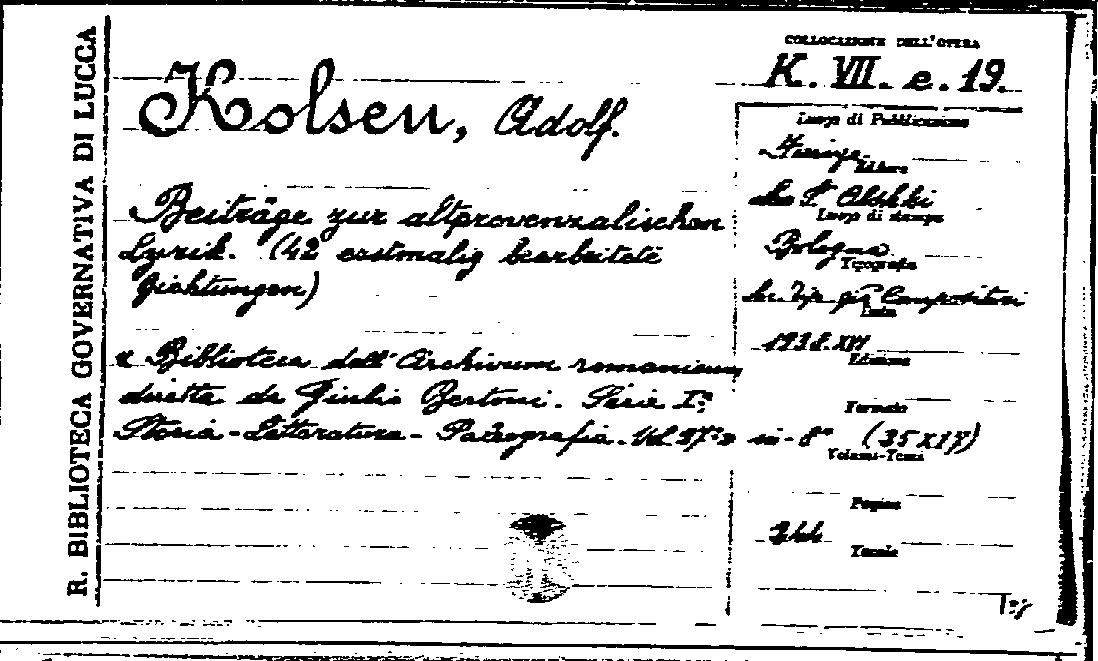 R. BIBLIOTECA GOVERNATIVA DI LUCCA
COLLOCAZIONE DELL'OPERA
K. VII. e. 19.
Kolsen, Adolf.
Beiträge zur altprovenzalischen
Lyrik. (42 erstmalig bearbeitete
Dichtungen)
« Biblioteca dell'Archivum romanicum
diretta da Giulio Bertoni. Serie I:
Storia - Letteratura - Paleografia. Vol. 27° » in-8° (25x17)
Luogo di Pubblicazione
Firenze
Editore
Leo S. Olschki
Luogo di stampa
Bologna
Tipografia
Compositori
Data
1938. XVI
Edizione
Formato
Volume-Tomo
Pagine
244
Tavole